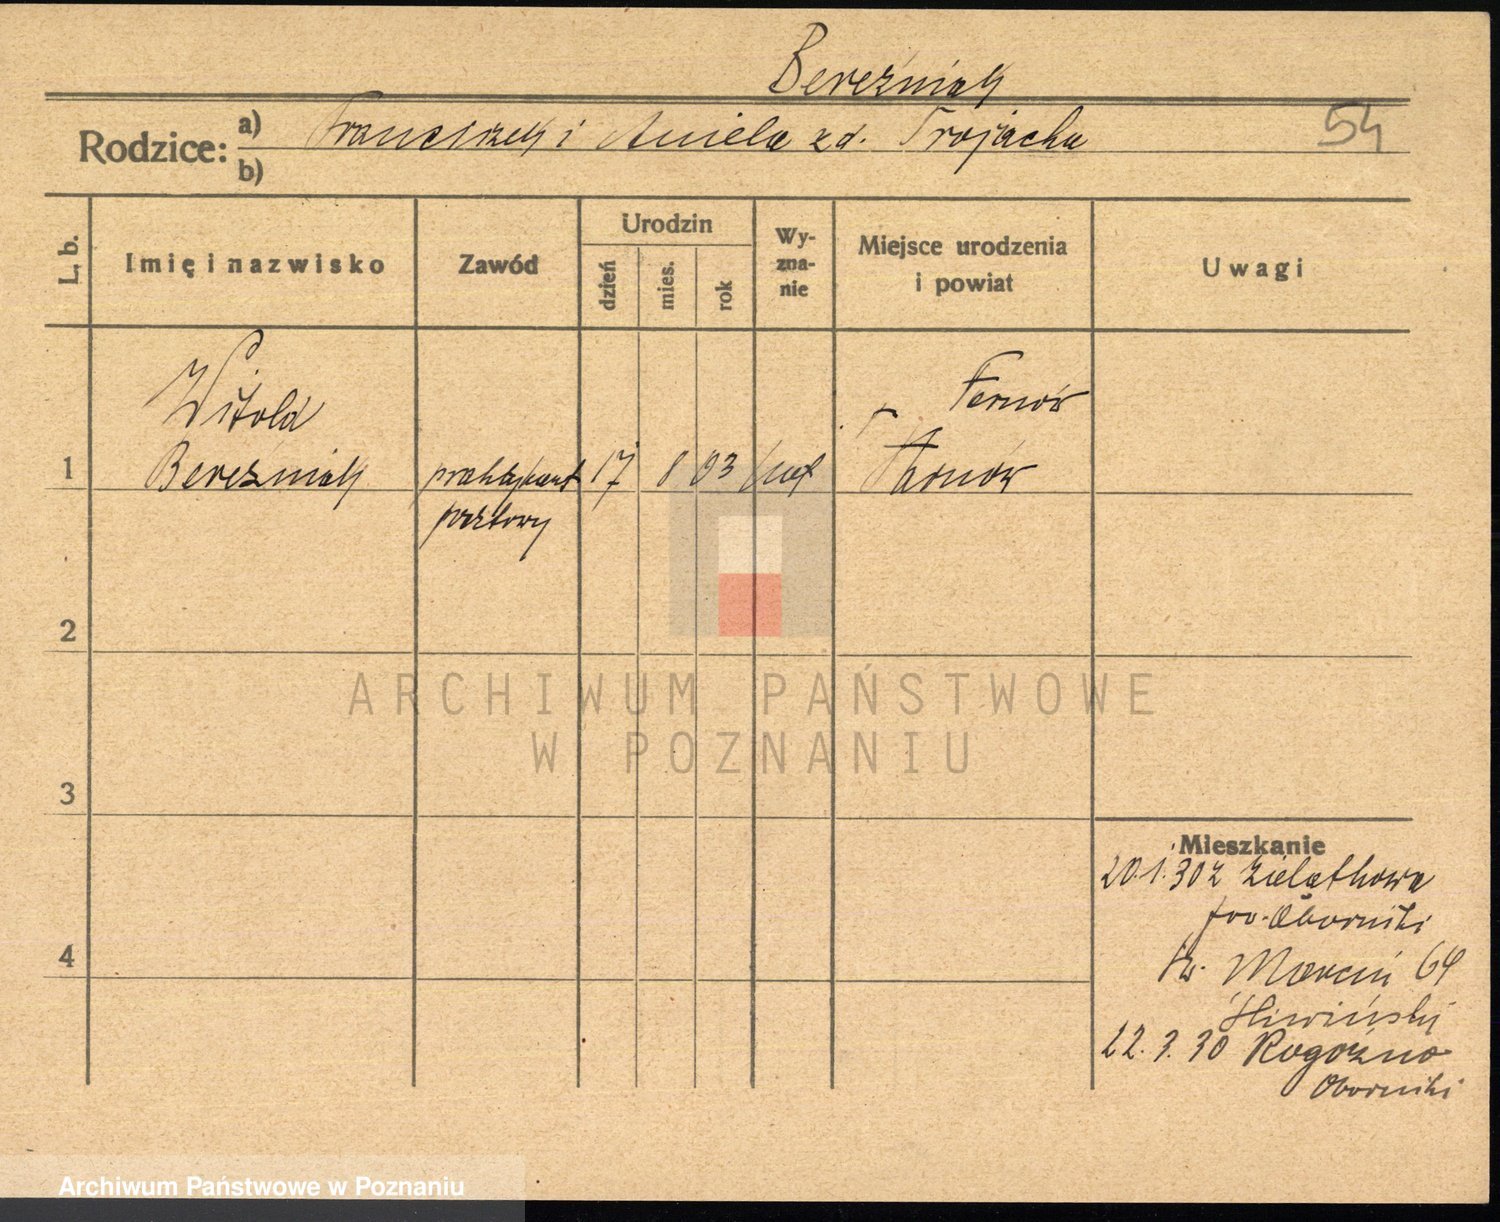 Bereźniak
Rodzice: a) Franciszek i Aniela zd. Trojacka
54
b)
L. b.
Imię i nazwisko
Zawód
Urodzin
dzień
mies.
rok
Wy-
zna-
nie
Miejsce urodzenia
i powiat
Uwagi
Witold
1 Bereźniak praktykant 17 8 03
pocztowy
2
3
4
ARCHIWUM PAŃSTWOWE
W POZNANIU
Mieszkanie
20.1.30 z Zielątkowa
pow. Oborniki
Św. Marcin 64
Śliwiński
22.3.30 Rogoźno
Oborniki
Archiwum Państwowe w Poznaniu